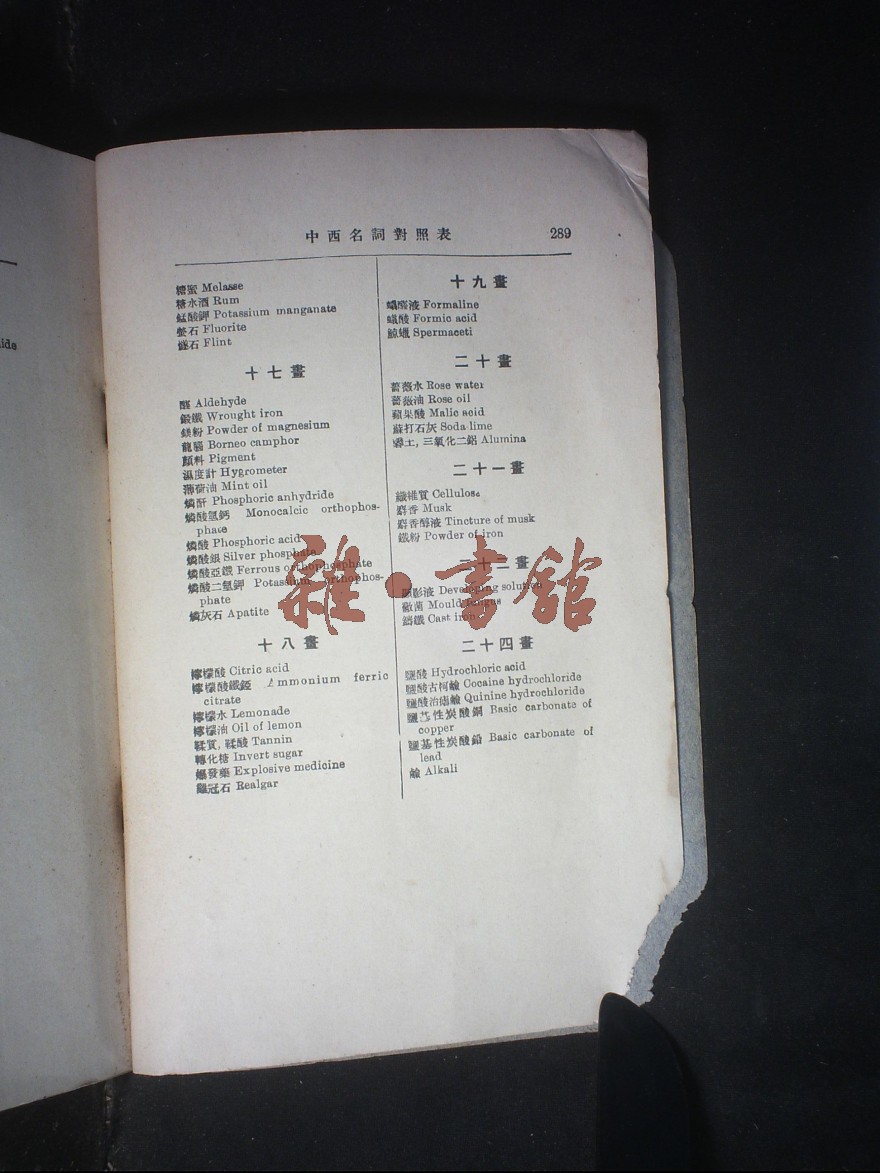 中西名詞對照表 289
糖蜜 Melasse
糖水酒 Rum
錳酸鉀 Potassium manganate
螢石 Fluorite
燧石 Flint
十七畫
醛 Aldehyde
鍛鐵 Wrought iron
鎂粉 Powder of magnesium
龍腦 Borneo camphor
顏料 Pigment
濕度計 Hygrometer
薄荷油 Mint oil
燐酐 Phosphoric anhydride
燐酸氫鈣 Monocalcic orthophos-
phate
燐酸 Phosphoric acid
燐酸銀 Silver phosphate
燐酸亞鐵 Ferrous orthophosphate
燐酸二氫鉀 Potassium orthophos-
phate
燐灰石 Apatite
十八畫
檸檬酸 Citric acid
檸檬酸鐵銨 Ammonium ferric
citrate
檸檬水 Lemonade
檸檬油 Oil of lemon
鞣質, 鞣酸 Tannin
轉化糖 Invert sugar
爆發藥 Explosive medicine
雞冠石 Realgar
十九畫
蟻醛液 Formaline
蟻酸 Formic acid
鯨蠟 Spermaceti
二十畫
薔薇水 Rose water
薔薇油 Rose oil
蘋果酸 Malic acid
蘇打石灰 Soda lime
礬土, 三氧化二鋁 Alumina
二十一畫
纖維質 Cellulose
麝香 Musk
麝香醇液 Tincture of musk
鐵粉 Powder of iron
十二畫
顯影液 Developing solution
黴菌 Mould fungus
鑄鐵 Cast iron
二十四畫
鹽酸 Hydrochloric acid
鹽酸古柯鹼 Cocaine hydrochloride
鹽酸治瘧鹼 Quinine hydrochloride
鹽基性炭酸銅 Basic carbonate of
copper
鹽基性炭酸鉛 Basic carbonate of
lead
鹼 Alkali
雜·書館